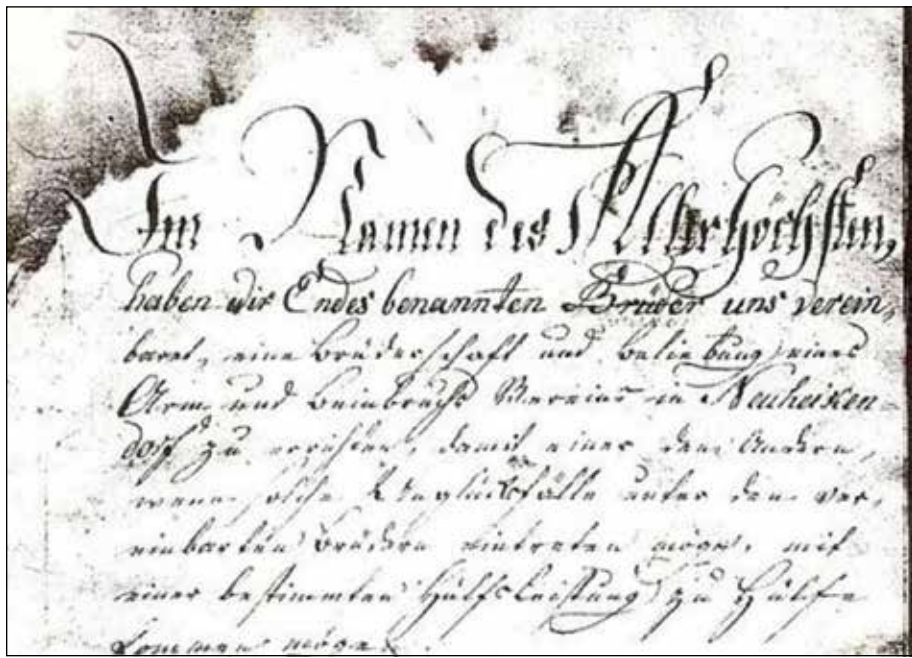 Im Namen des Allerhöchsten,
haben wir Endes benannten Brüder uns verein-
baret, eine Brüderschaft und Beliebung eines
Arm- und Beinbruchs Vereins in Neuheiken-
dorf zu errichten, damit einer dem Andern,
wenn solche Unglücksfälle unter den ver-
einbarten Brüdern eintreten möge, mit
einer bestimmten Hülfsleistung zu Hülfe
kommen möge.